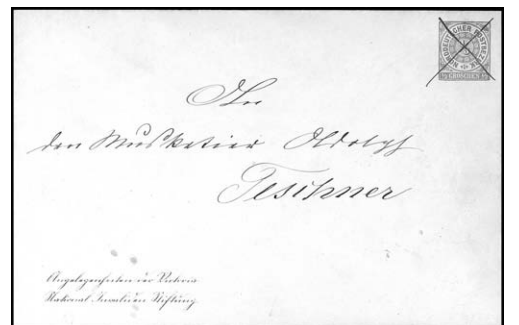 NORDDEUTSCHER POSTBEZIRK
GROSCHEN
An
den Musketier Adolph
Teschner
Angelegenheiten der Victoria
National Invaliden Stiftung